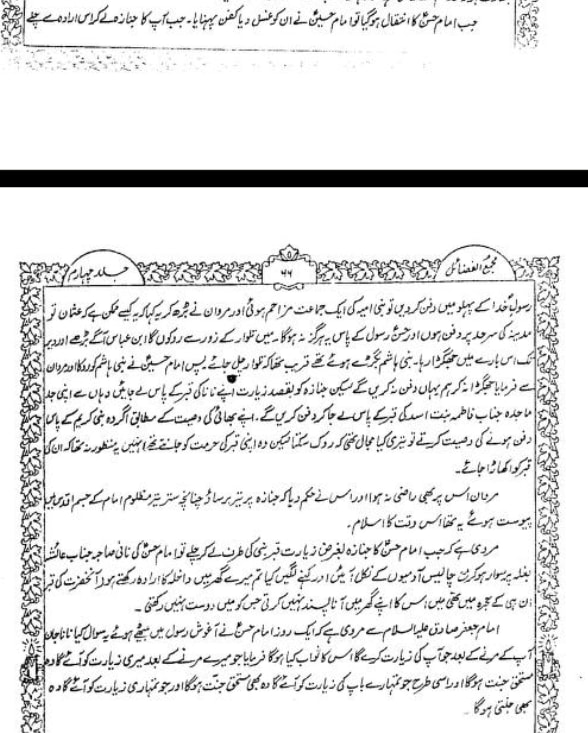 جب امام حسنؑ کا انتقال ہوگیا تو امام حسینؑ نے ان کو غسل دیا کفن پہنایا۔ جب آپ کا جنازہ لے کر اس ارادہ سے چلے
مجمع الفضائل
۶۶
جلد چہارم
رسولِ خدا کے پہلو میں دفن کر دیں تو بنی امیہ کی ایک جماعت مزاحم ہوئی اور مروان نے بڑھ کر یہ کہا کہ یہ کیسے ممکن ہے کہ عثمان تو
مدینہ کی سرحد پر دفن ہوں اور حسنؑ رسول کے پاس یہ ہرگز نہ ہوگا۔ میں تلوار کے زور سے روکوں گا ابن عباس آگے بڑھے اور دیر
تک اس بارے میں جھگڑا رہا۔ بنی ہاشم بگڑے ہوئے تھے قریب تھا کہ تلوار چل جائے پس امام حسینؑ نے بنی ہاشم کو روکا اور مروان
سے فرمایا جھگڑا نہ کر ہم یہاں دفن نہ کریں گے لیکن جنازہ کو بقصد زیارت اپنے نانا کی قبر کے پاس لے جائیں وہاں سے اپنی جد
ماجدہ جناب فاطمہ بنت اسد کی قبر کے پاس لے جا کر دفن کریں گے۔ اپنے بھائی کی وصیت کے مطابق اگر وہ نبی کریم کے پاس
دفن ہونے کی وصیت کرتے تو تیری کیا مجال تھی کہ روک سکتا لیکن وہ اپنی قبر کی حرمت کو جانتے تھے انہیں یہ منظور نہ تھا کہ ان کی
قبر کو اکھاڑا جائے۔
مروان اس پر بھی راضی نہ ہوا اور اس نے حکم دیا کہ جنازہ پر تیر برساؤ چنانچہ ستر تیر مظلوم امام کے جسم اقدس میں
پیوست ہوئے یہ تھا اس وقت کا اسلام۔
مروی ہے کہ جب امام حسنؑ کا جنازہ بغرض زیارت قبر نبی کی طرف لے کر چلے تو امام حسنؑ کی نانی صاحبہ جناب عائشہ
بغلہ پر سوار ہو کر چالیس آدمیوں کے نکل آئیں اور کہنے لگیں کیا تم میرے گھر میں داخلہ کا ارادہ رکھتے ہو۔ آنحضرت کی قبر
ان ہی کے حجرہ میں تھی میں اس کا اپنے گھر میں آنا پسند نہیں کرتی جس کو میں دوست نہیں رکھتی۔
امام جعفر صادق علیہ السلام سے مروی ہے کہ ایک روز امام حسنؑ نے آغوش رسول میں بیٹھے ہوئے یہ سوال کیا نانا جان
آپ کے مرنے کے بعد جو آپ کی زیارت کرے گا اس کا ثواب کیا ہوگا فرمایا جو میرے مرنے کے بعد میری زیارت کو آئے گا وہ
مستحق جنت ہوگا اور اسی طرح جو تمہارے باپ کی زیارت کو آئے گا وہ بھی مستحق جنت ہوگا اور جو تمہاری زیارت کو آئے گا وہ
بھی جنتی ہوگا۔